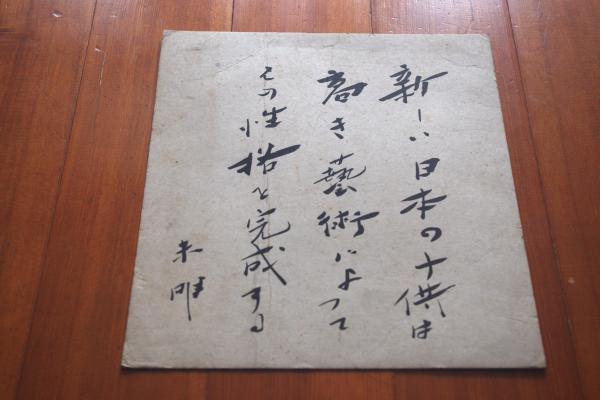 新しい日本の子供は
高き藝術によつて
その性格を完成する
未明